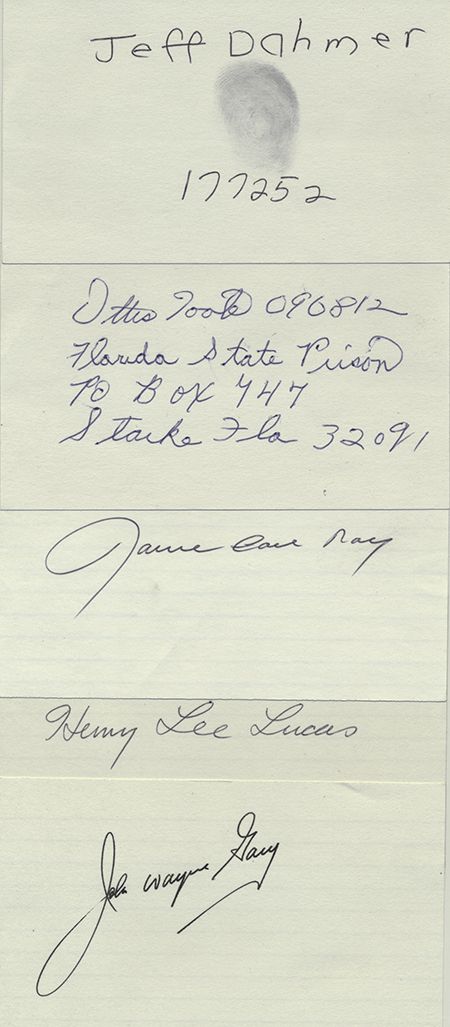 Jeff Dahmer
177252
Ottis Toole 090812
Florida State Prison
PO BOX 747
Starke Fla 32091
James Earl Ray
Henry Lee Lucas
John Wayne Gacy